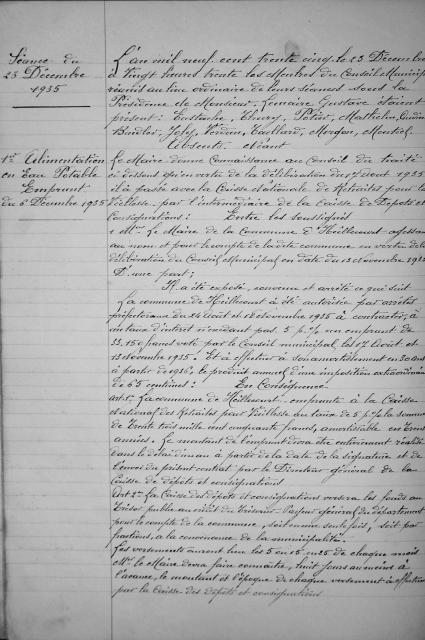 Séance du
23 Décembre
1935
L'an mil neuf cent trente cinq le 23 Décembre
à Vingt heures trente les Membres du Conseil Municipal
réunis au lieu ordinaire de leurs séances sous la
Présidence de Monsieur Lemaire Gustave étaient
présent: Eustache, Thierry, Petier, Mathelin,
Bindler, Joly, Verdun, Taillard, Morfan, Montiel,
Absents néant
1° Alimentation
en Eau Potable
Emprunt
du 6 Décembre 1935
Le Maire donne Connaissance au Conseil du traité
ci dessous qu'en vertu de la délibération du 17 août 1935
il a passé avec la Caisse Nationale de Retraites pour la
Vieillesse, par l'intermédiaire de la Caisse de Dépôts et
Consignations: Entre les soussignés
1 Mr. Le Maire de la Commune d'Heillecourt agissant
au nom et pour le compte de la dite commune en vertu de la
délibération du Conseil Municipal en date du 13 Novembre 1935
D'une part;
Il a été exposé, convenu et arrêté ce qui suit
La commune de Heillecourt a été autorisée par arrêtés
préfectoraux du 24 août et 18 Novembre 1935 à contracter, à
un taux d'intérêt n'excédant pas 5 p % un emprunt de
33.150 francs voté par le Conseil municipal les 17 Août et
13 Novembre 1935. Et à affecter à son amortissement en 30 ans
à partir de 1936, le produit annuel d'une imposition extraordinaire
de 65 centimes: En Conséquence
Art 1er La commune de Heillecourt emprunte à la Caisse
Nationale des Retraites pour Vieillesse au taux de 5 p % la somme
de Trente trois mille cent cinquante francs, amortissable en trente
années. Le montant de l'emprunt devra être entièrement réalisé
dans le délai d'un an à partir de la date de la signature et de
l'envoi du présent contrat par le Directeur général de la
Caisse de dépôts et consignations
Art 2e La Caisse des dépôts et consignations versera les fonds au
Trésor public au crédit du Trésorier-Payeur général du département
pour le compte de la commune, soit en une seule fois, soit par
fractions, à la convenance de la municipalité.
Les versements auront lieu les 5 ou 15 ou 25 de chaque mois
Mr. le Maire devra faire connaître, huit jours au moins à
l'avance, le montant et l'époque de chaque versement à effectuer
par la Caisse des dépôts et consignations